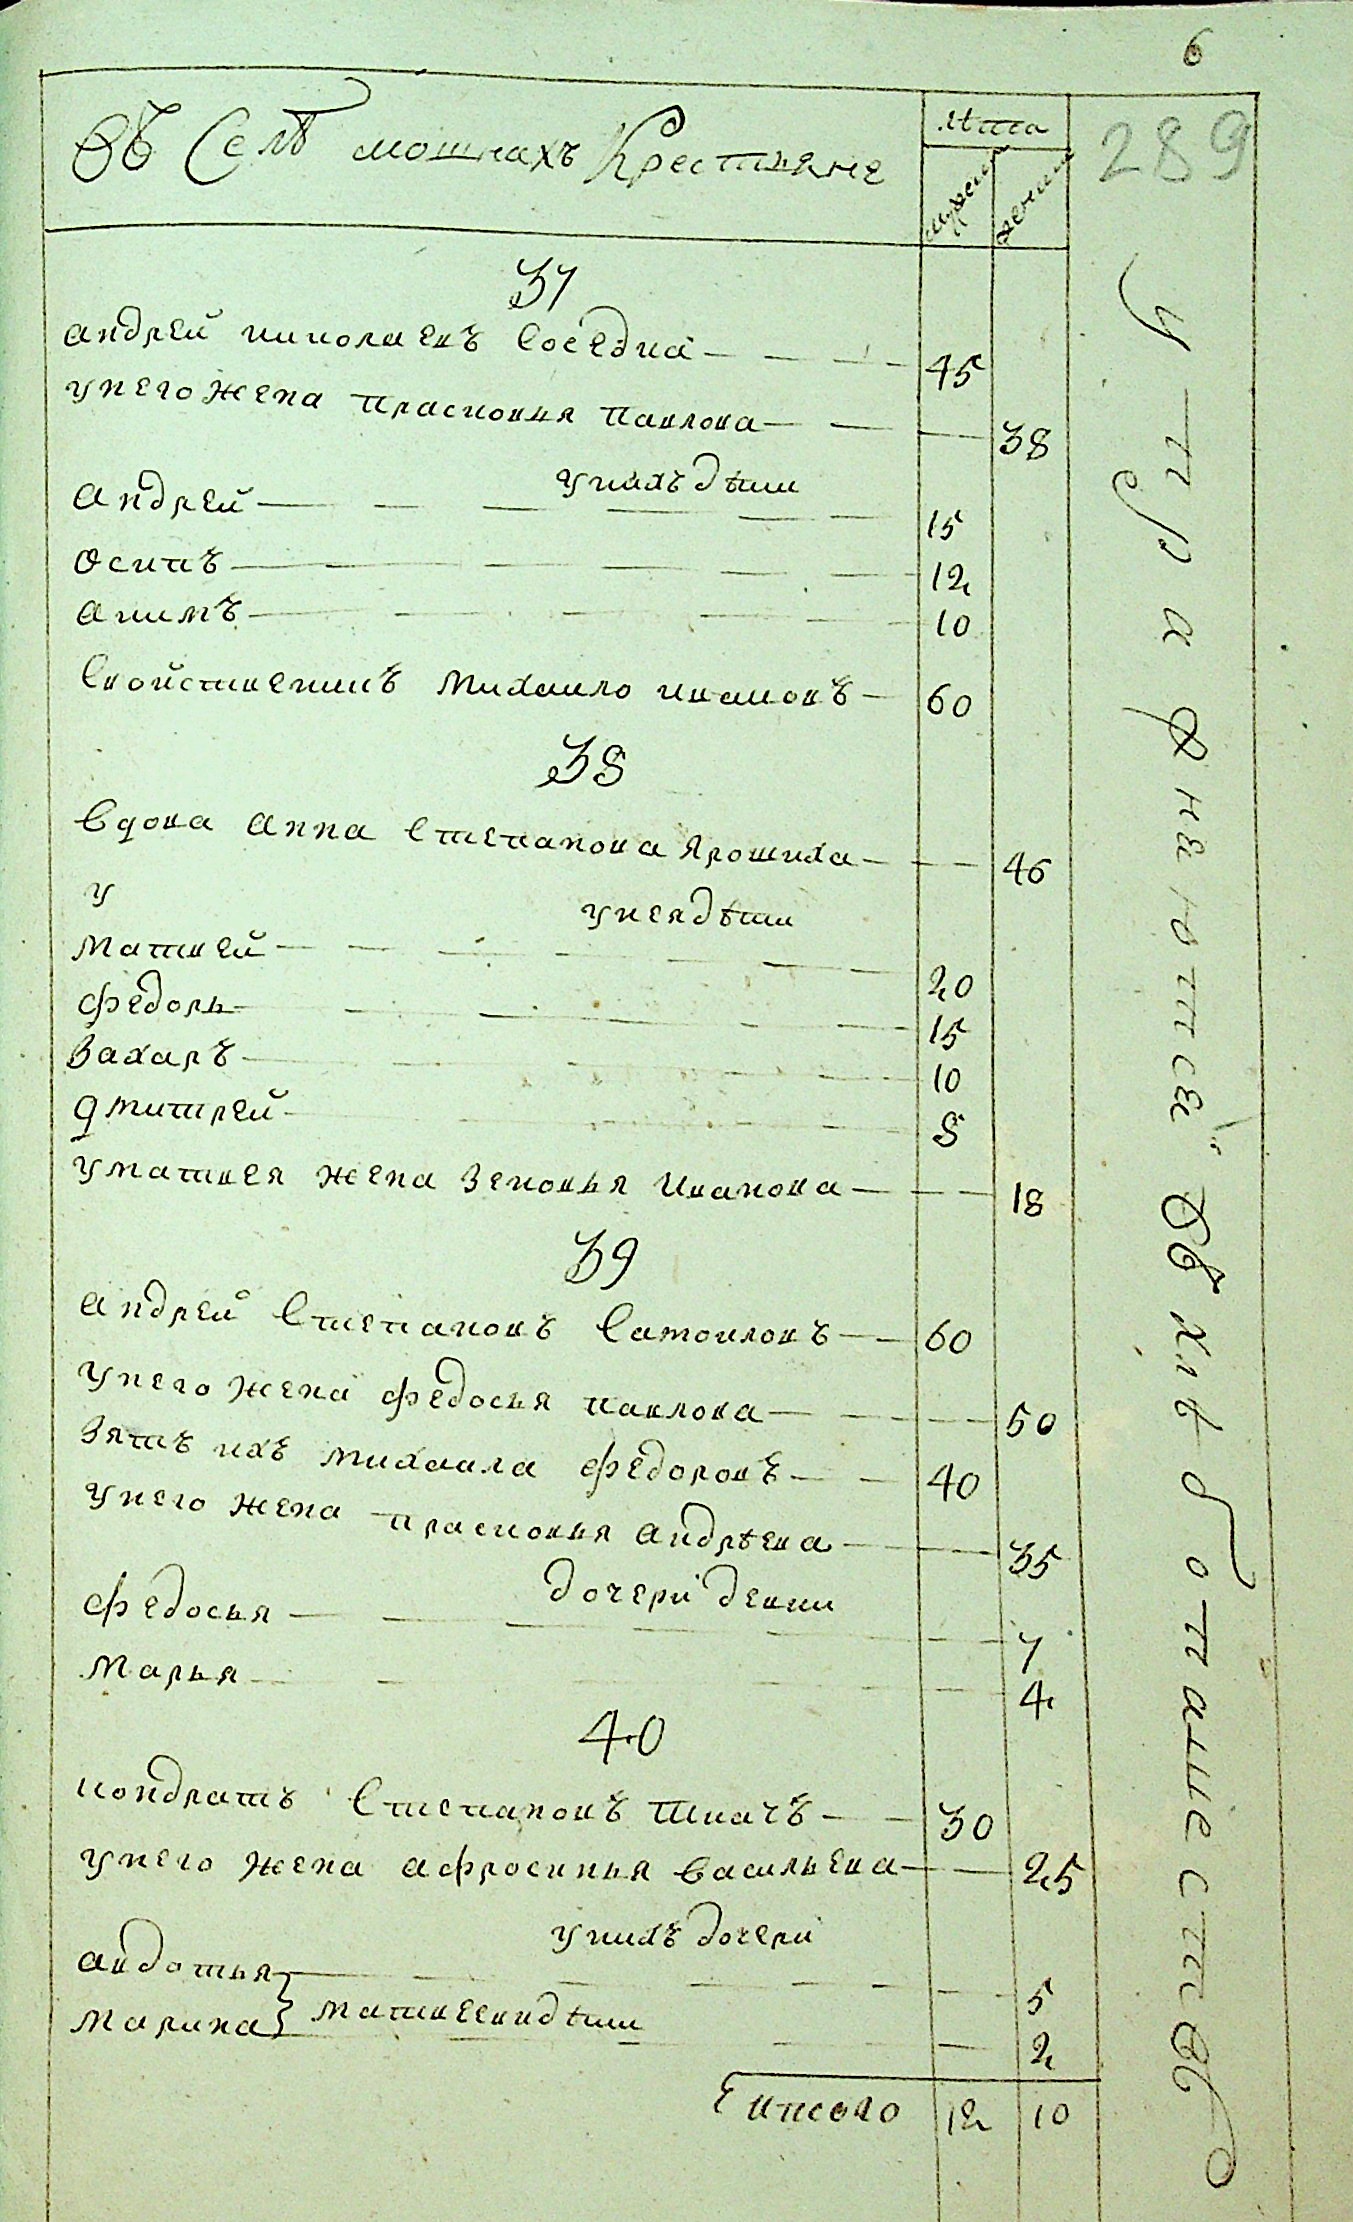 6
289
Въ Селѣ мошнахъ Крестьяне
Лѣта
мужски
женски
37
андрей николаевъ Соседка
45
унего жена Прасковья Павлова
38
унихъ дѣти
андрей
15
осипъ
12
акимъ
10
Свойственикъ Михаило ивановъ
60
38
вдова Анна Степанова Ярошиха
46
у
унея дѣти
Матвей
20
Федоръ
15
Захаръ
10
Дмитрей
8
у матвея жена Зеновья Иванова
18
39
андрей Степановъ Самоиловъ
60
унего жена федосья павлова
50
Зять ихъ михаила федоровъ
40
унего жена прасковья андрѣева
35
дочери девки
федосья
7
Марья
4
40
кондратъ Степановъ Ткачъ
30
унего жена афросинья васильева
25
унихъ дочери
авдотья
5
марина
матвеевы дѣти
2
Итого
12
10
упражняются въ хлѣбопашествѣ